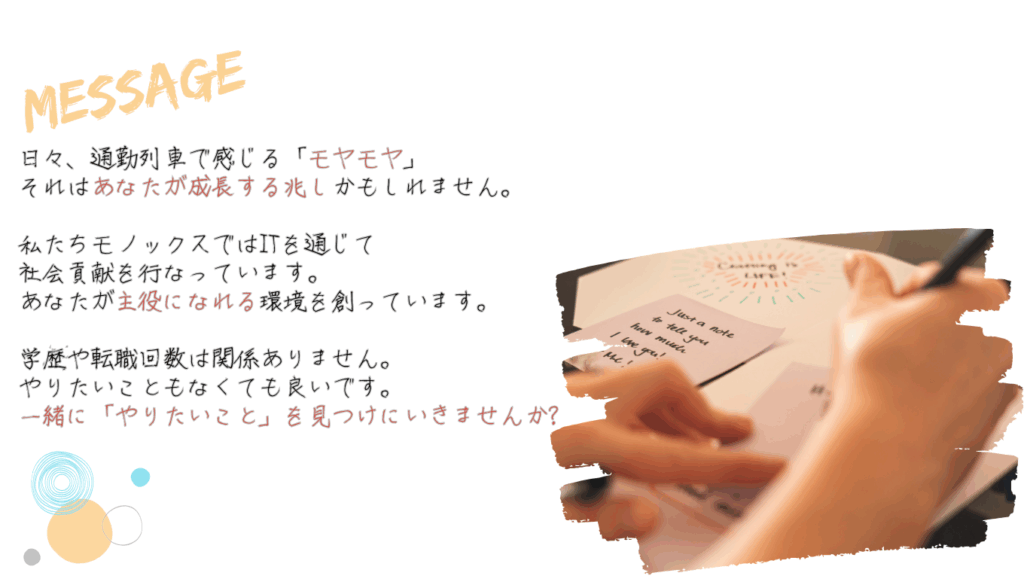 MESSAGE
日々、通勤列車で感じる「モヤモヤ」
それはあなたが成長する兆しかもしれません。
私たちモノックスではITを通じて
社会貢献を行なっています。
あなたが主役になれる環境を創っています。
学歴や転職回数は関係ありません。
やりたいこともなくても良いです。
一緒に「やりたいこと」を見つけにいきませんか?
LIFE!
Just a note
to tell you
how much
I love you!
Me!